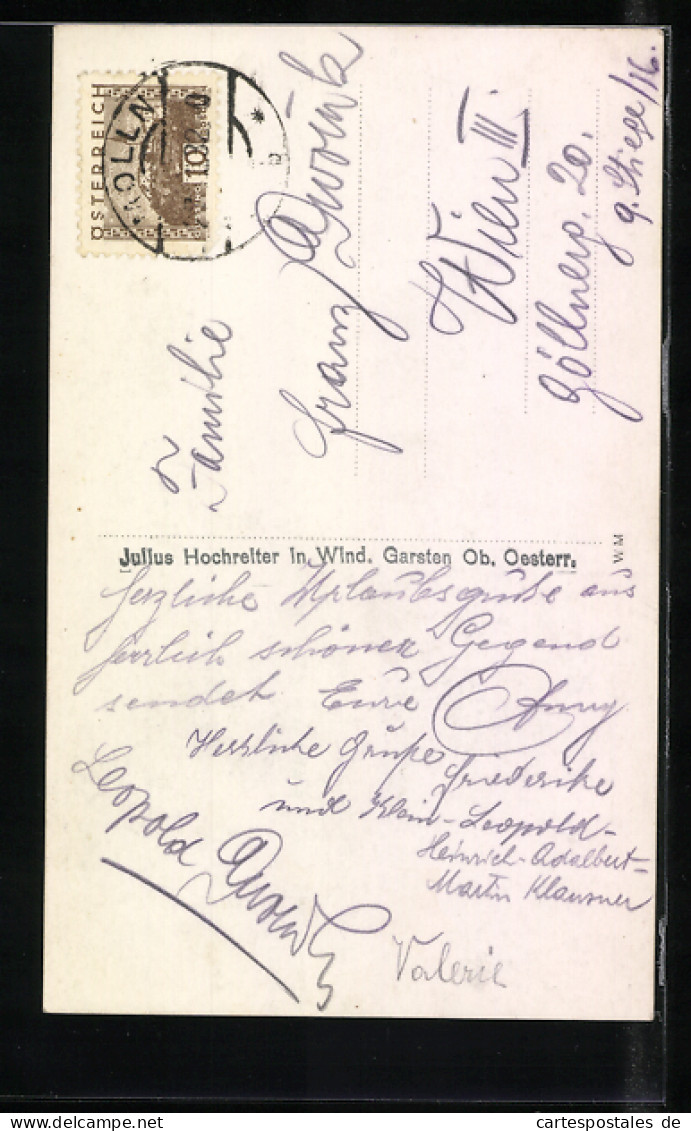 ÖSTERREICH
10
Familie
Franz Dworak
Wien III.
Göllnerg. 20.
9. Stiege/16.
Julius Hochreiter in Wind. Garsten Ob. Oesterr.
WM
Herzliche Urlaubsgrüße aus
herrlich schöner Gegend
sendet Eure Anny
Herzliche Grüße Friederike
und Klein-Leopold-
Heinrich-Adalbert-
Martin Klausner
Leopold
Valerie
cartespostales de
cartespostales.de